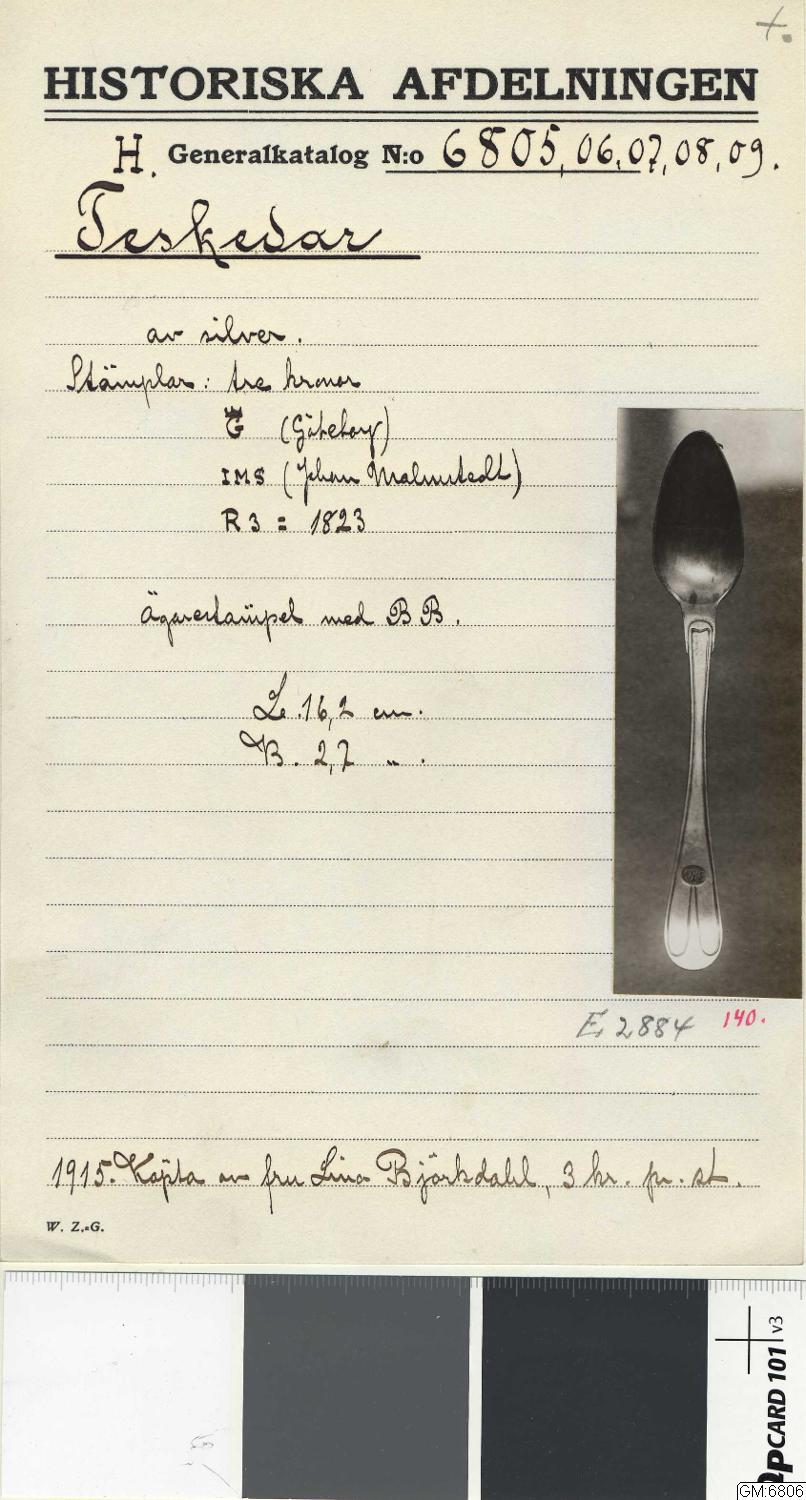 +.
HISTORISKA AFDELNINGEN
H. Generalkatalog N:o 6805, 06, 07, 08, 09.
Teskedar
av silver.
Stämplar: tre kronor
G (Göteborg)
IMS (Johan Malmstedt)
R3 = 1823
Ägarestämpel med B B.
L. 16,2 cm.
B. 2,7 „ .
E, 2884 140.
1915. Köpta av fru Lina Björkdahl, 3 kr. pr. st.
W. Z.=G.
QPCARD 101 v3
GM:6806